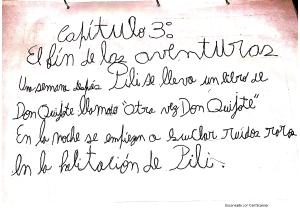 Capítulo 3:
El fin de las aventuras
Un semana después Pili se lleva un libro de
Don Quijote llamado "otra vez Don Quijote"
En la noche se empiezan a escuchar ruidos raros
En la habitación de Pili.
Escaneado con CamScanner